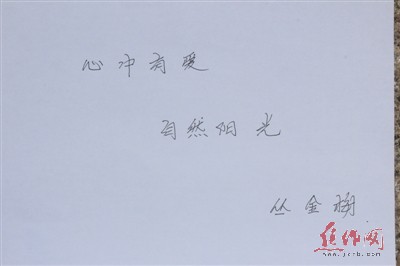 心中有爱
自然阳光
丛金梅
焦作网
www.jzrb.com